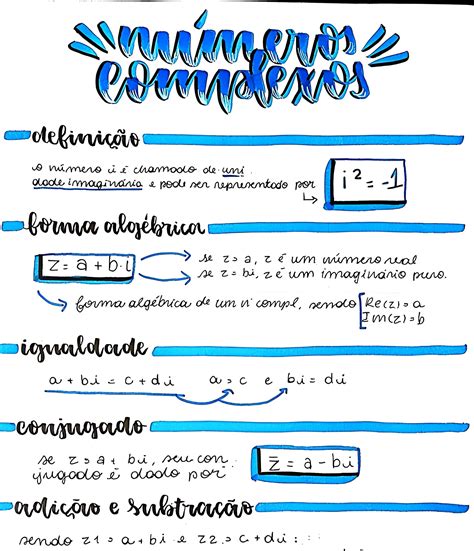 números
complexos
definição
o número i é chamado de uni
dade imaginária e pode ser representado por
i² = -1
forma algébrica
z = a + b.i
se z = a, z é um número real
se z = bi, z é um imaginário puro.
forma algébrica de um n° compl, sendo
Re(z) = a
Im(z) = b
igualdade
a + bi = c + di a = c e bi = di
conjugado
se z = a + bi, seu con
jugado é dado por:
z̅ = a - bi
adição e subtração
sendo z1 = a + bi e z2 = c + di :